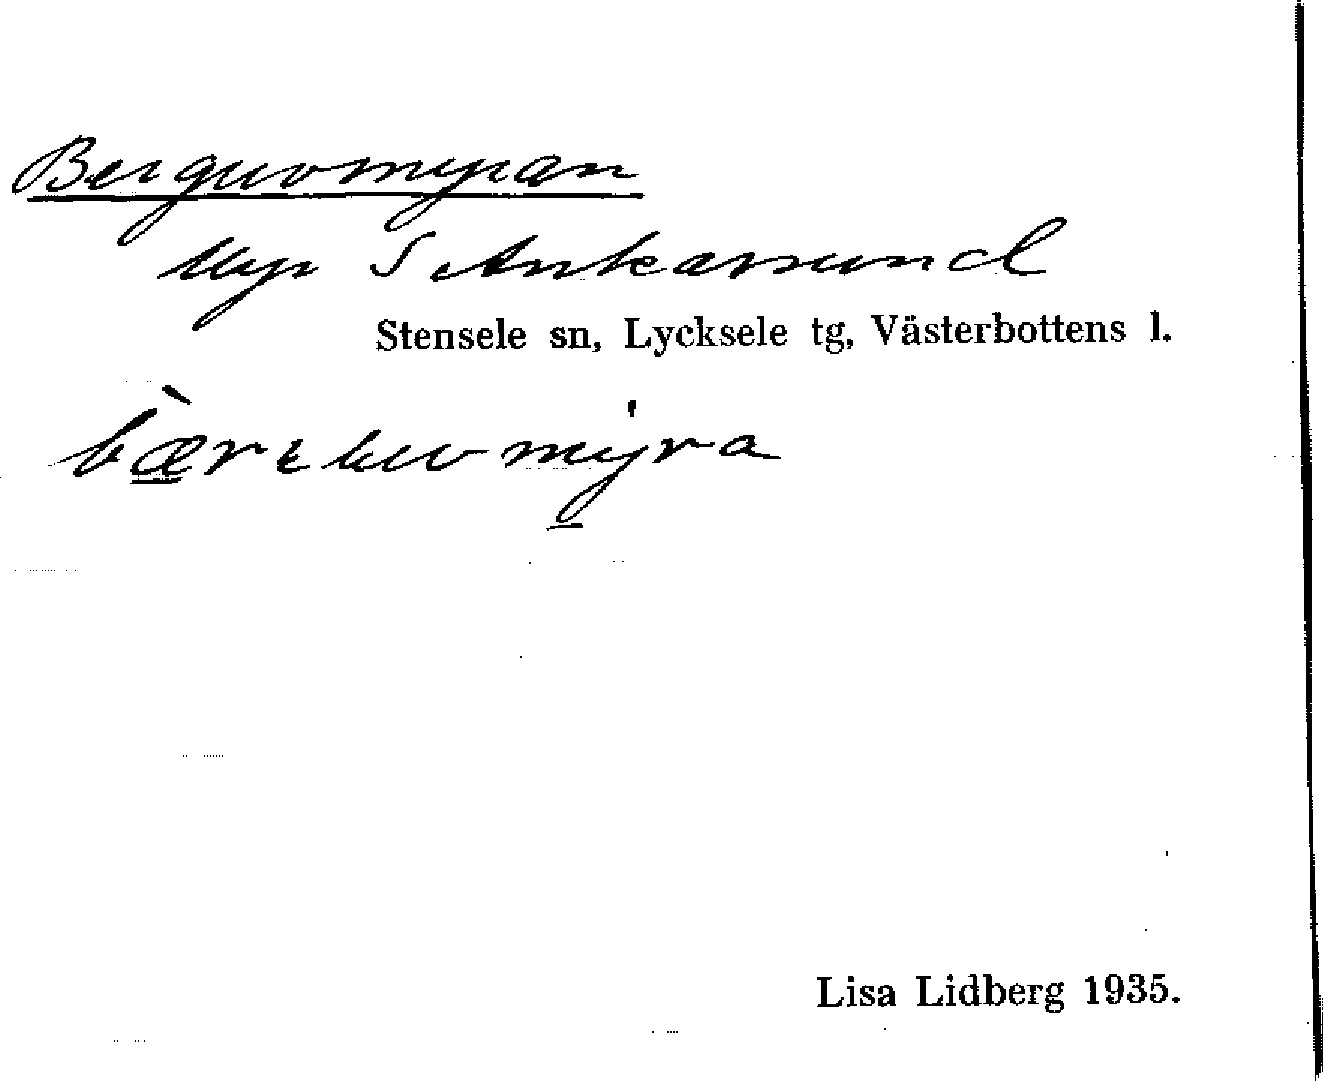 Berguvmyran
Myr S Ankarsund
Stensele sn, Lycksele tg, Västerbottens l.
Lisa Lidberg 1935.